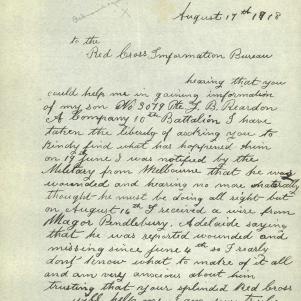 August 17th 1918
to the
Red Cross Information Bureau
hearing that you
could help me in gaining information
of my son No 3079 Pte T. B. Reardon
A Company 10th Battalion I have
taken the liberty of asking you to
kindly find what has happened him
on 19th June I was notified by the
Military from Melbourne that he was
wounded and hearing no more
thought he must be doing all right but
on August 16th I received a wire from
Major Pendlebury Adelaide saying
that he was reported wounded and
missing since June 4th so I really
dont know what to make of it all
and am very anxious about him
trusting that your splendid Red Cross
will help me I am yours truly